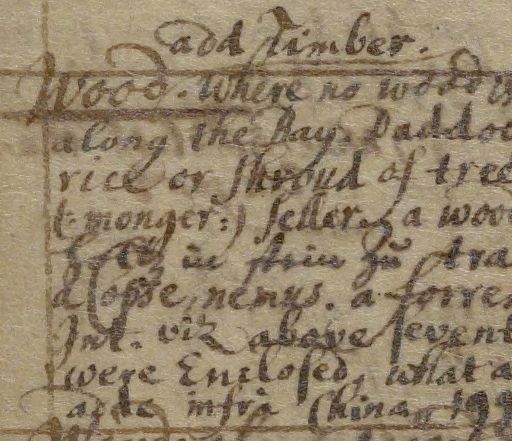 add Timber.
Wood. Where no wood is
along the Bay. Daddoc
rice or shroud of tree
t-monger:) seller, a wood
in zu tra
d Copse, nemus. a forre
Int. viz above sevent
were Enclosed, what a
adde infrà China, 19